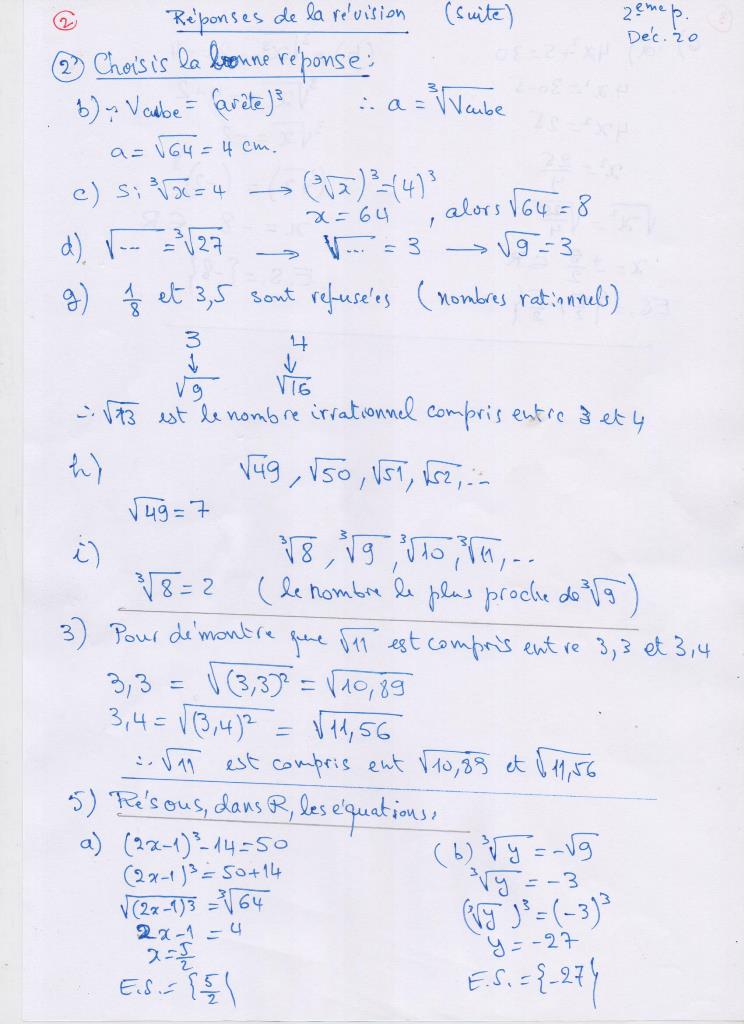 ② Réponses de la révision (suite) 2ème p.
Déc. 20
②) Choisis la bonne réponse:
b) ∵ Vcube = (arête)³ ∴ a = ∛Vcube
a = √64 = 4 cm.
c) Si ∛x = 4 → (∛x)³ = (4)³
x = 64 , alors √64 = 8
d) √... = ∛27 → √... = 3 → √9 = 3
g) 1/8 et 3,5 sont refusées (nombres rationnels)
3 4
↓ ↓
√9 √16
∴ √13 est le nombre irrationnel compris entre 3 et 4
h) √49, √50, √51, √52, ...
√49 = 7
i) ∛8, ∛9, ∛10, ∛11, ...
∛8 = 2 (le nombre le plus proche de ∛9)
3) Pour démontre que √11 est compris entre 3,3 et 3,4
3,3 = √(3,3)² = √10,89
3,4 = √(3,4)² = √11,56
∴ √11 est compris ent √10,89 et √11,56
5) Résous, dans R, les équations:
a) (2x-1)³ - 14 = 50
(2x-1)³ = 50+14
√(2x-1)3 = ∛64
2x-1 = 4
x = 5/2
E.S. = {5/2}
(b) ∛y = -√9
∛y = -3
(∛y)³ = (-3)³
y = -27
E.S. = {-27}